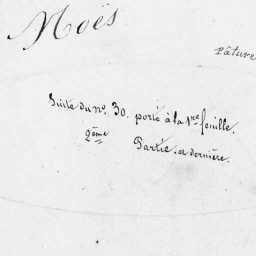 Moës
Pâture
Suite du nº 30. porté à la 1re feuille.
2ème Partie et dernière.